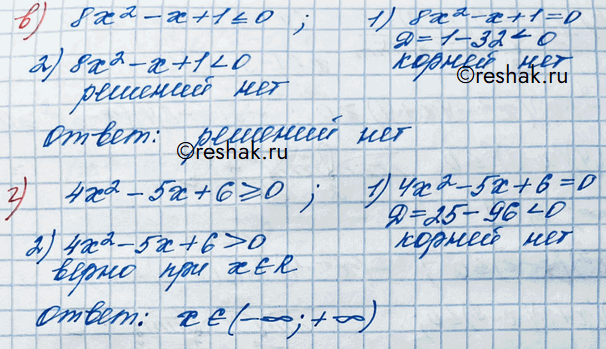 в) 8x² - x + 1 ≤ 0 ; 1) 8x² - x + 1 = 0
D = 1 - 32 < 0
корней нет
2) 8x² - x + 1 < 0
решений нет
©reshak.ru
Ответ: решений нет
©reshak.ru
г) 4x² - 5x + 6 ≥ 0 ; 1) 4x² - 5x + 6 = 0
D = 25 - 96 < 0
корней нет
2) 4x² - 5x + 6 > 0
верно при x ∈ R
Ответ: x ∈ (-∞; +∞)